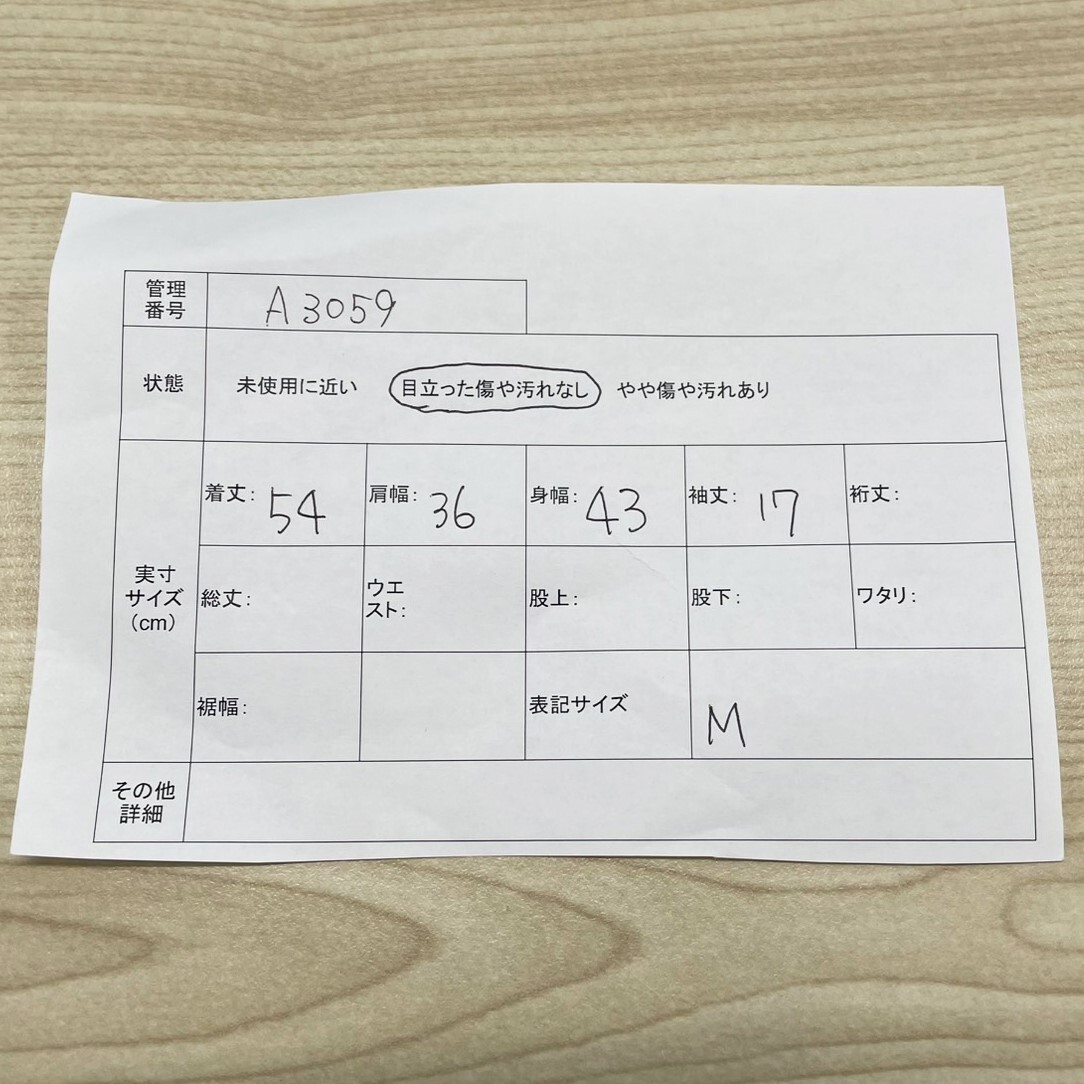 管理
番号
A3059
状態
未使用に近い 目立った傷や汚れなし やや傷や汚れあり
実寸
サイズ
(cm)
着丈: 54 肩幅: 36 身幅: 43 袖丈: 17 裄丈:
総丈: ウエ
スト: 股上: 股下: ワタリ:
裾幅: 表記サイズ M
その他
詳細